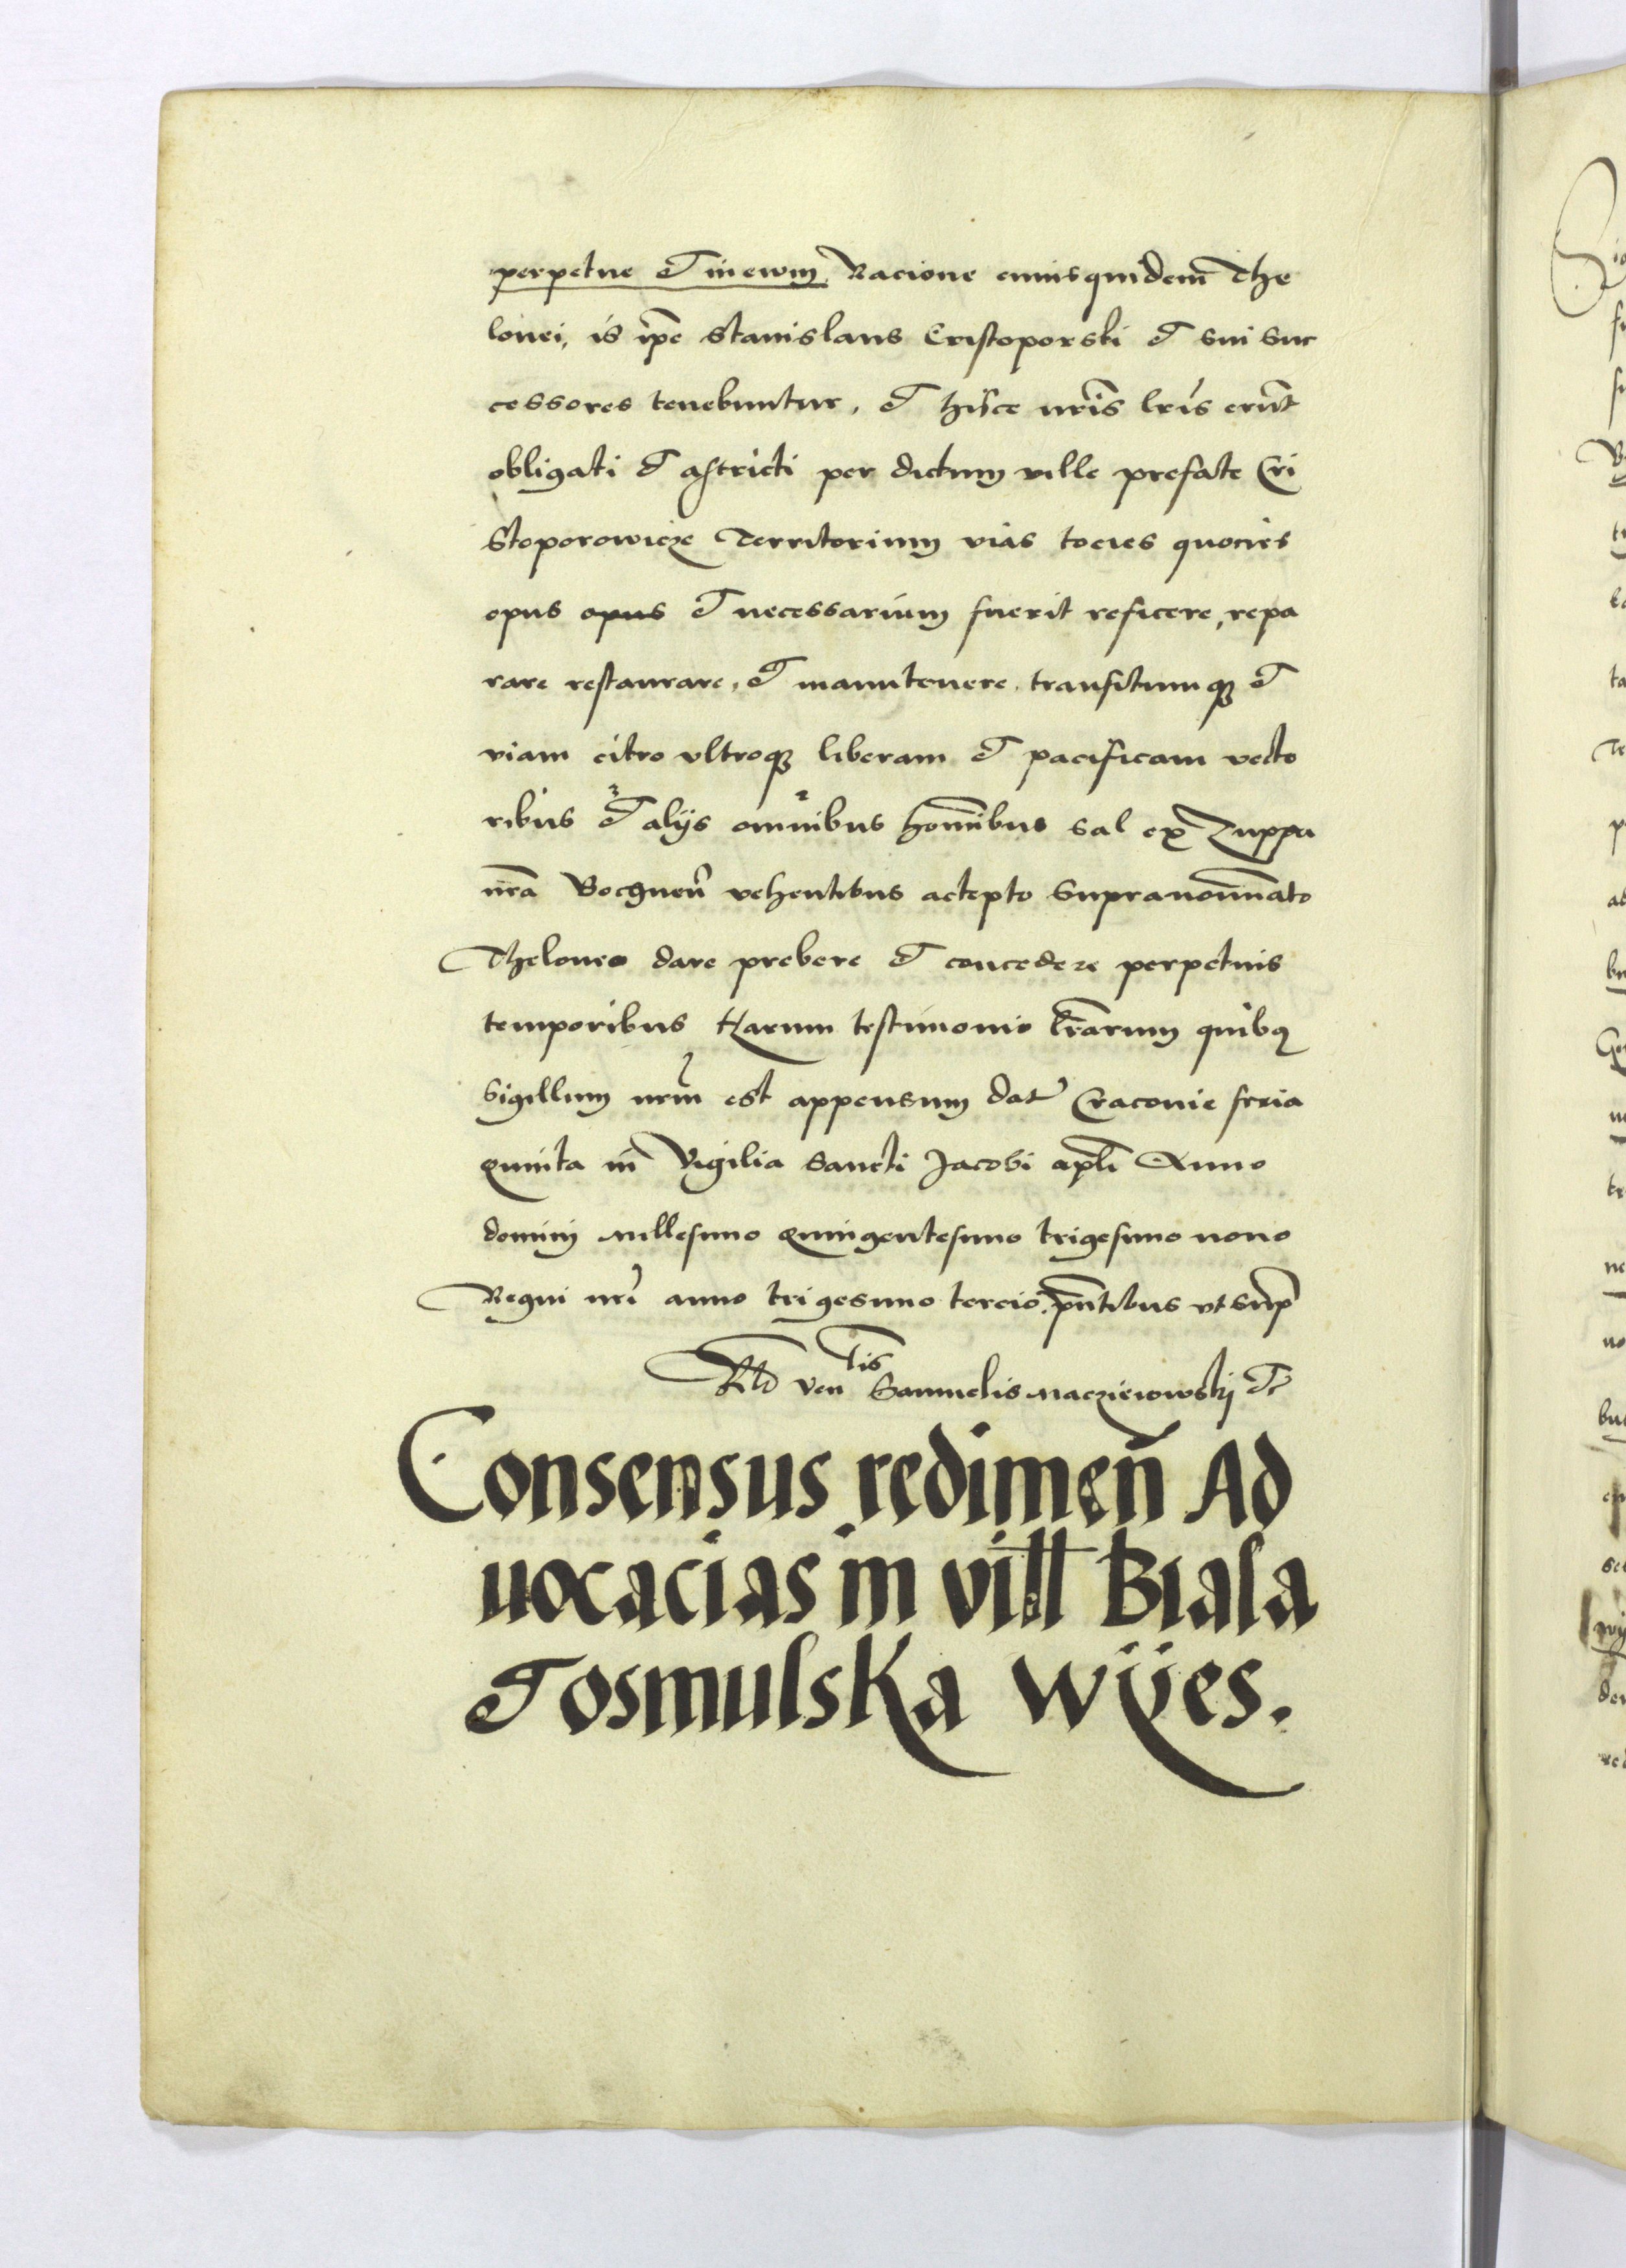 perpetue et in ewum Racione cuiusquidem The
lonei, is ip̃e Stanislaus Cristoporski et sui suc
cessores tenebuntur, et hisce nr̃is lr̃is erũt
obligati et astricti per dictum ville prefate Cri
stoporowicze Territorium vias tocies quocies
opus opus et necessarium fuerit reficere, repa
rare restaurare, et manutenere transitumqꝫ et
viam citro vltroqꝫ liberam et pacificam vecto
ribus et alijs omnibus hom̃ibus sal ex Zuppa
nr̃a Bocħnen̄ vehentibus accepto supranoĩato
Theloneo dare prebere et concedere perpetuis
temporibus Harum testimonio lr̃arum quibꝫ
Sigillum nrm̃ est appensum dat̃ Cracovie feria
quinta in Vigilia Sancti Jacobi apl̃i Anno
domini millesimo quingentesimo trigesimo nono
Regni nr̃i anno trigesimo tercio. pñtibus vt sup̃
Rlõ ven lis Samuelis maczieiowskij etc̃
Consensus redimen̄ Ad
uocacias in vill Biala
et osmulska wijes.